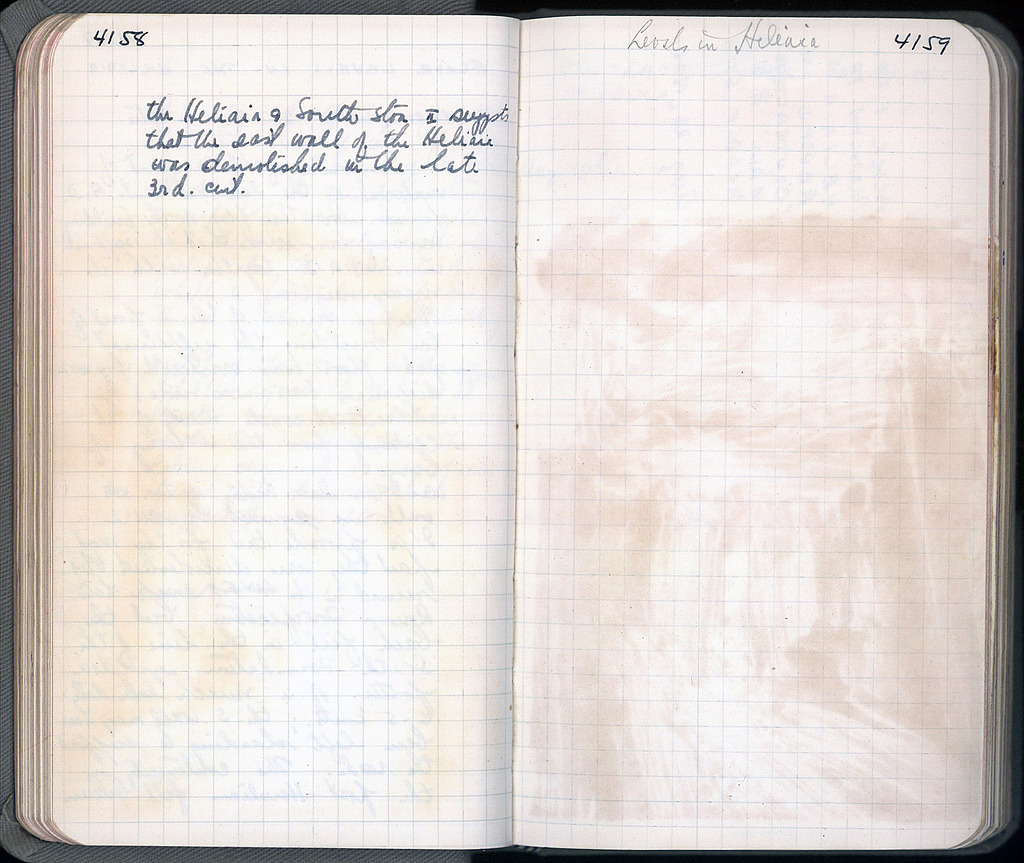 4158
the Heliaia & South Stoa II suggests
that the east wall of the Heliaia
was demolished in the late
3rd. cent.
Levels in Heliaia
4159